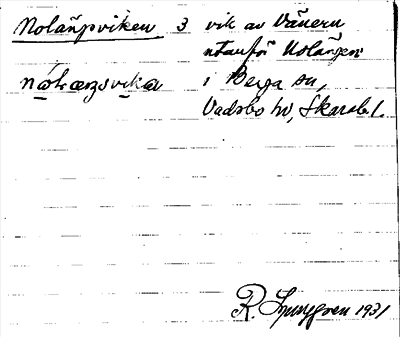 Nolängsviken 3 vik av Vänern
utanför Nolängen
i Berga sn,
Vadsbo hd, Skarab. l.
R. Ljunggren 1931